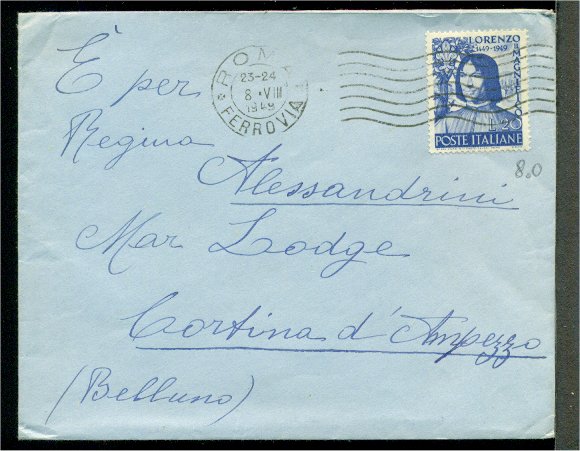 È per
Regina
Alessandrini
Mar Lodge
Cortina d'Ampezzo
(Belluno)
ROMA
23-24
8·VIII
1949
FERROVIA
LORENZO
1449-1949
IL MAGNIFICO
L. 20
POSTE ITALIANE
8.0